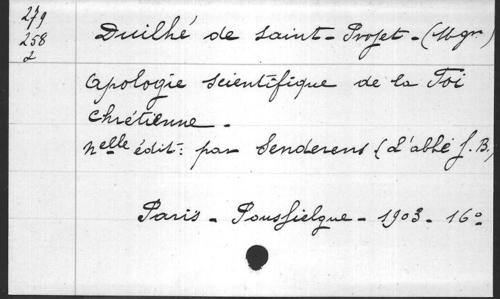 279
258
2
Duilhé de Saint-Projet - (Mgr)
Apologie scientifique de la Foi
Chrétienne -
Nelle édit: par Senderens (L'abbé J.B.)
Paris - Poussielgue - 1903 - 16°